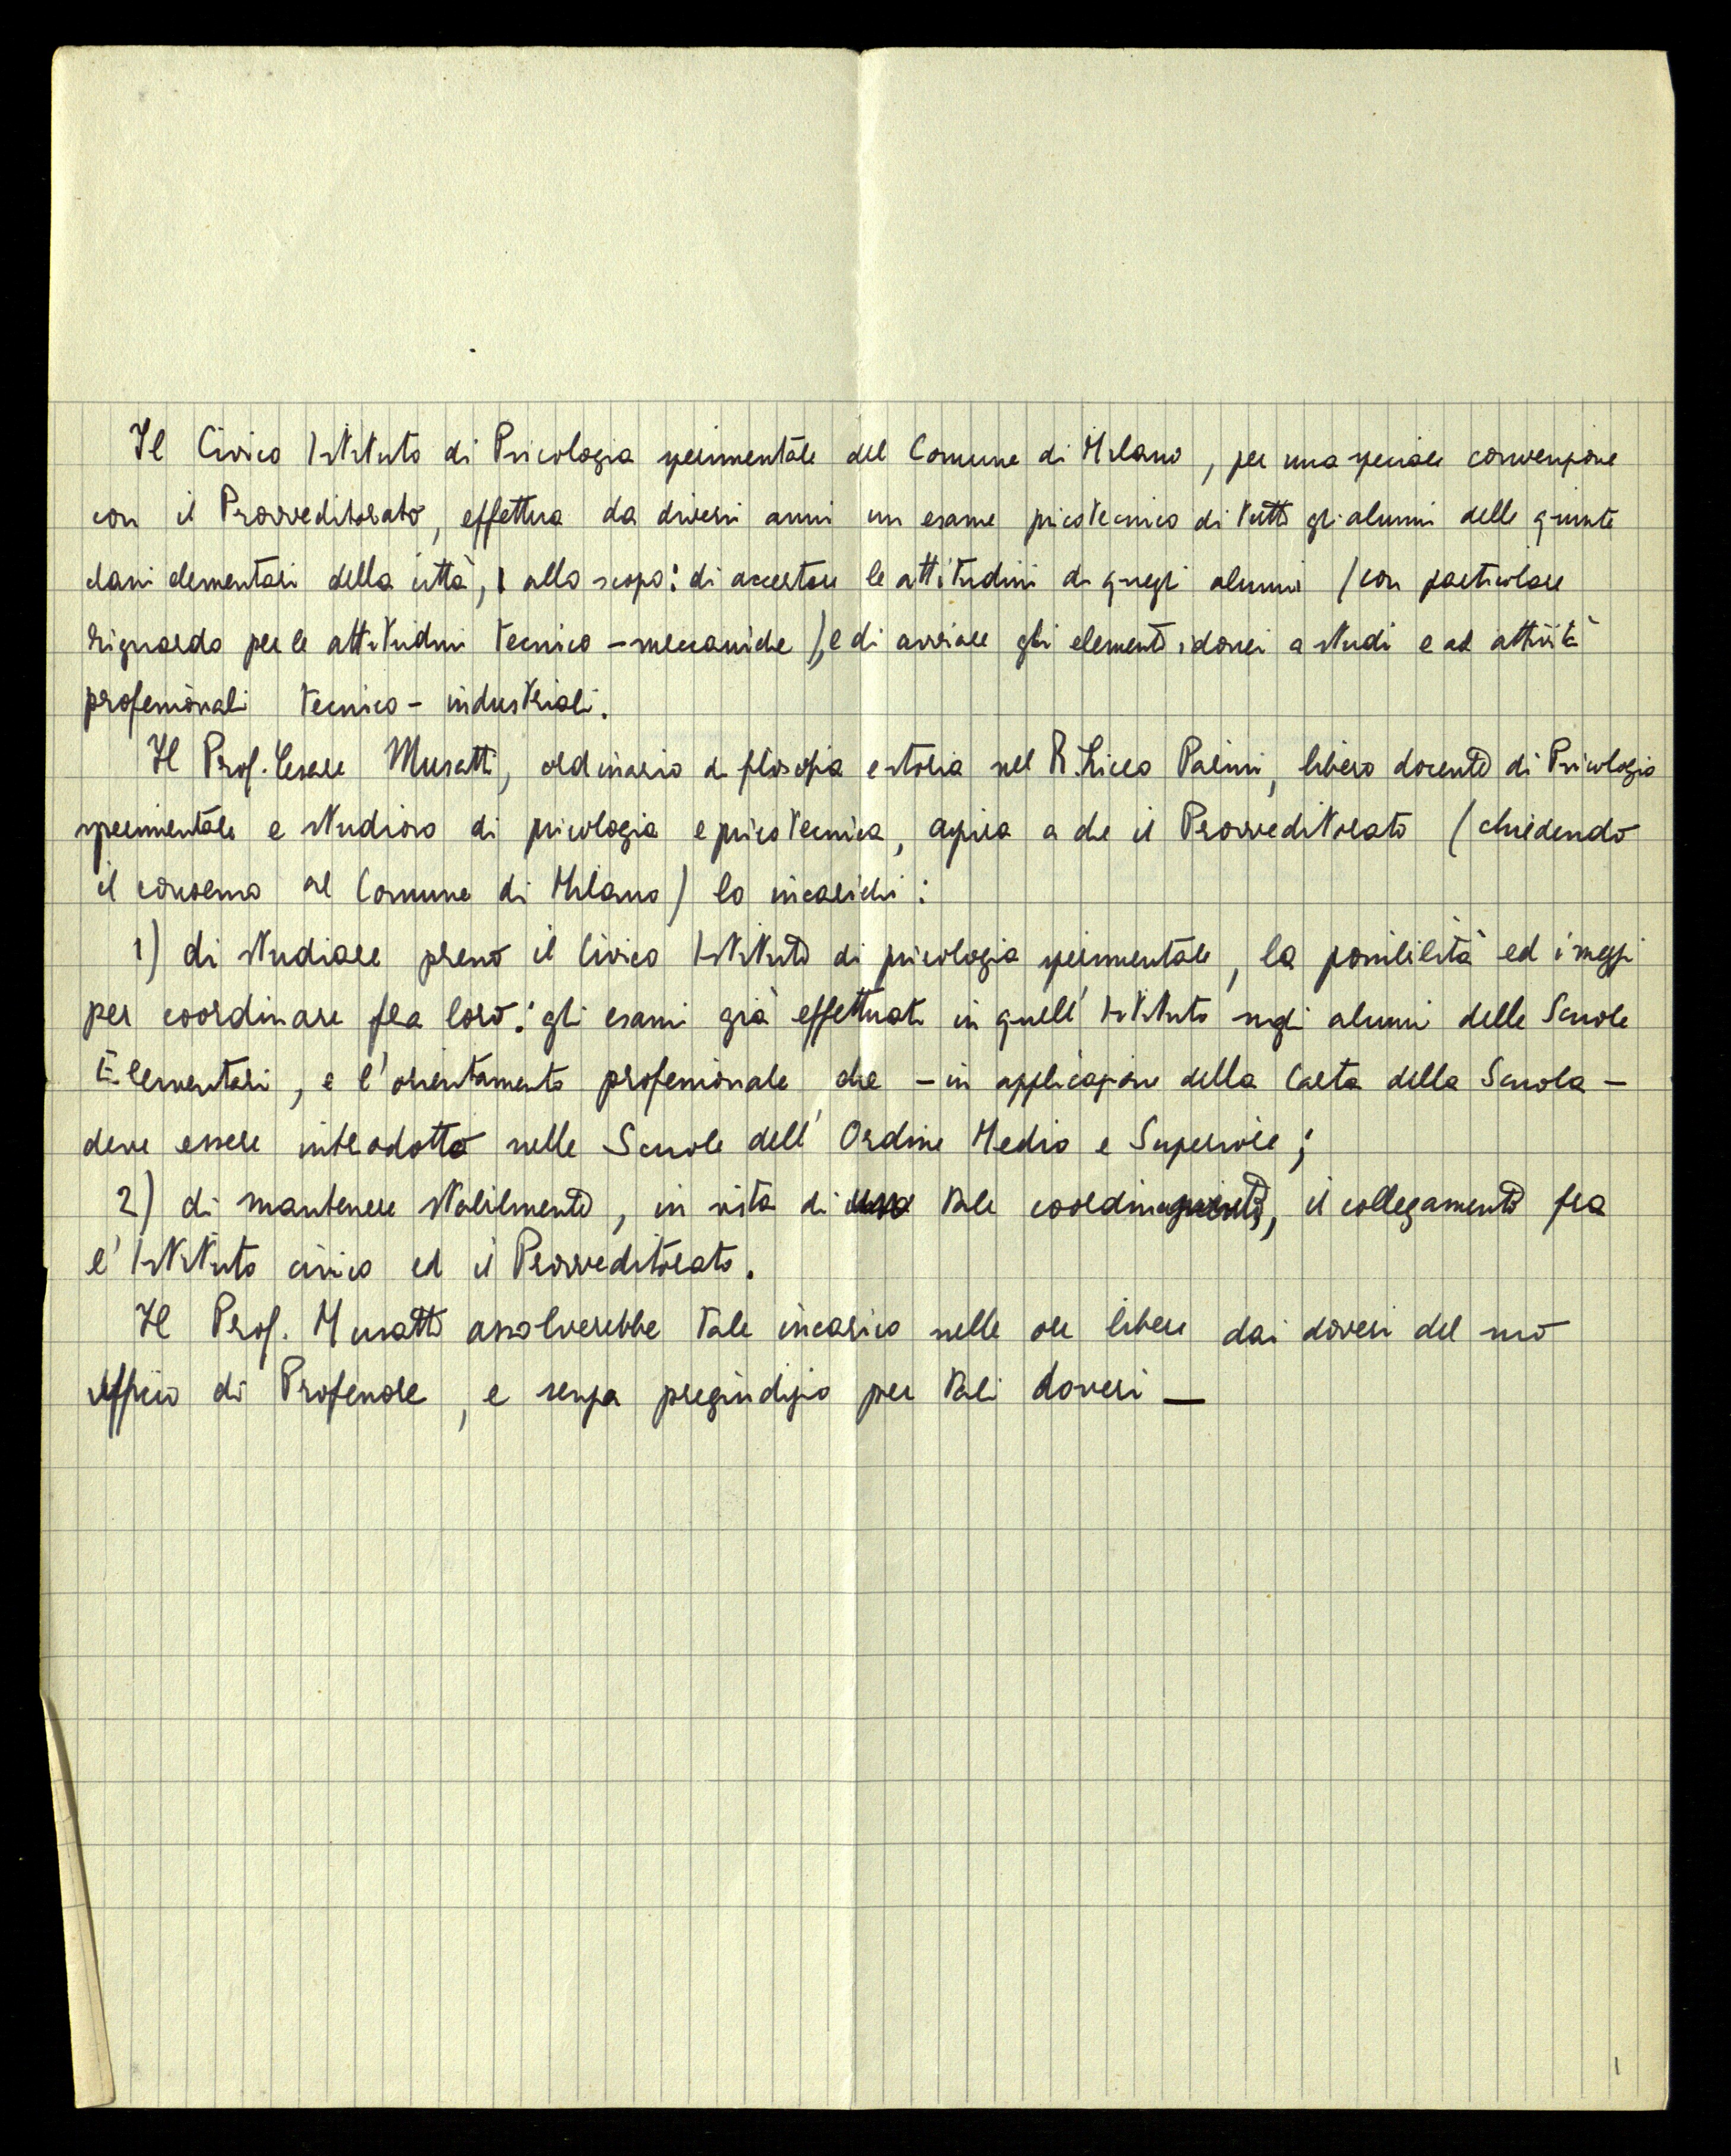 Il Civico Istituto di Psicologia sperimentale del Comune di Milano, per una speciale convenzione
con il Provveditorato, effettua da diversi anni un esame psicotecnico di tutti gli alunni delle quinte
classi elementari della città, allo scopo: di accertare le attitudini di quegli alunni (con particolare
riguardo per le attitudini tecnico-meccaniche), e di avviare gli elementi idonei a studi e ad attività
professionali tecnico-industriali.
Il Prof. Cesare Musatti, ordinario di filosofia e storia nel R. Liceo Parini, libero docente di Psicologia
sperimentale e studioso di psicologia e psicotecnica, aspira a che il Provveditorato (chiedendo
il consenso al Comune di Milano) lo incarichi:
1) di studiare presso il Civico Istituto di psicologia sperimentale, la possibilità ed i mezzi
per coordinare fra loro: gli esami già effettuati in quell'Istituto sugli alunni delle Scuole
Elementari, e l'orientamento professionale che - in applicazione della Carta della Scuola -
deve essere introdotto nelle Scuole dell'Ordine Medio e Superiore;
2) di mantenere stabilmente, in vista di tale coordinamento, il collegamento fra
l'Istituto civico ed il Provveditorato.
Il Prof. Musatti assolverebbe tale incarico nelle ore libere dai doveri del suo
ufficio di Professore, e senza pregiudizio per tali doveri —
1